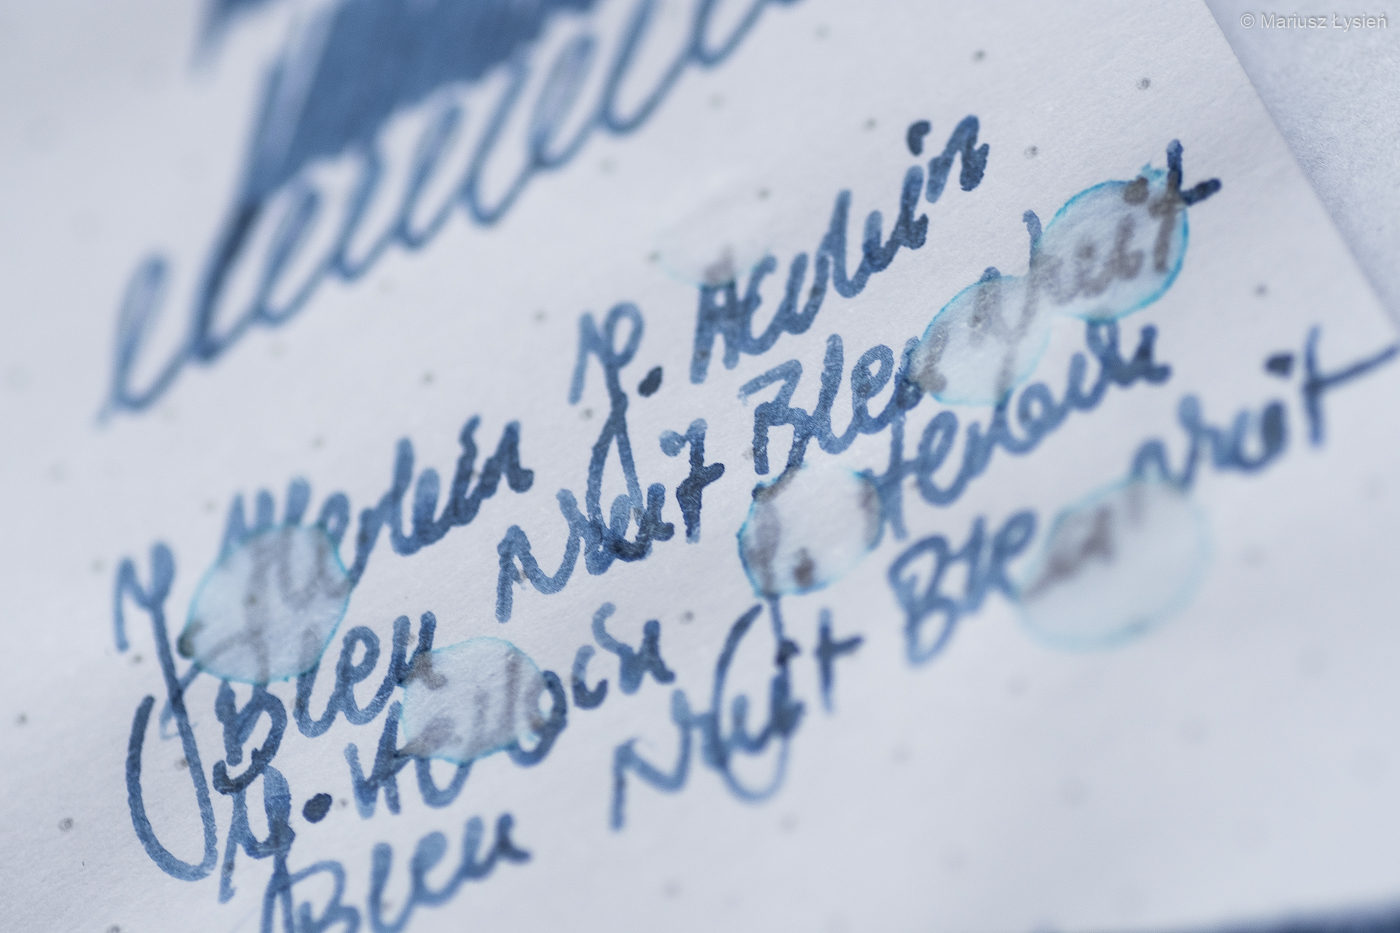 © Mariusz Łysień
J. Herbin J. Herbin
Bleu Nuit Bleu Nuit
J.
Bleu Nuit Bleu Nuit